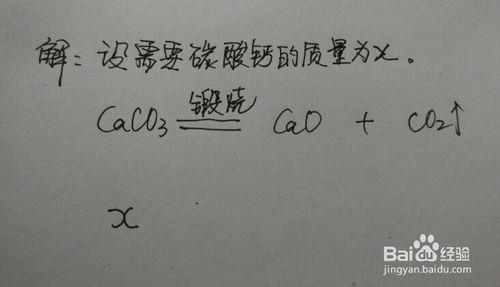 解：设需要碳酸钙的质量为x。
煅烧
CaCO₃ ══ CaO + CO₂↑
x
Baidu经验
jingyan.baidu.com